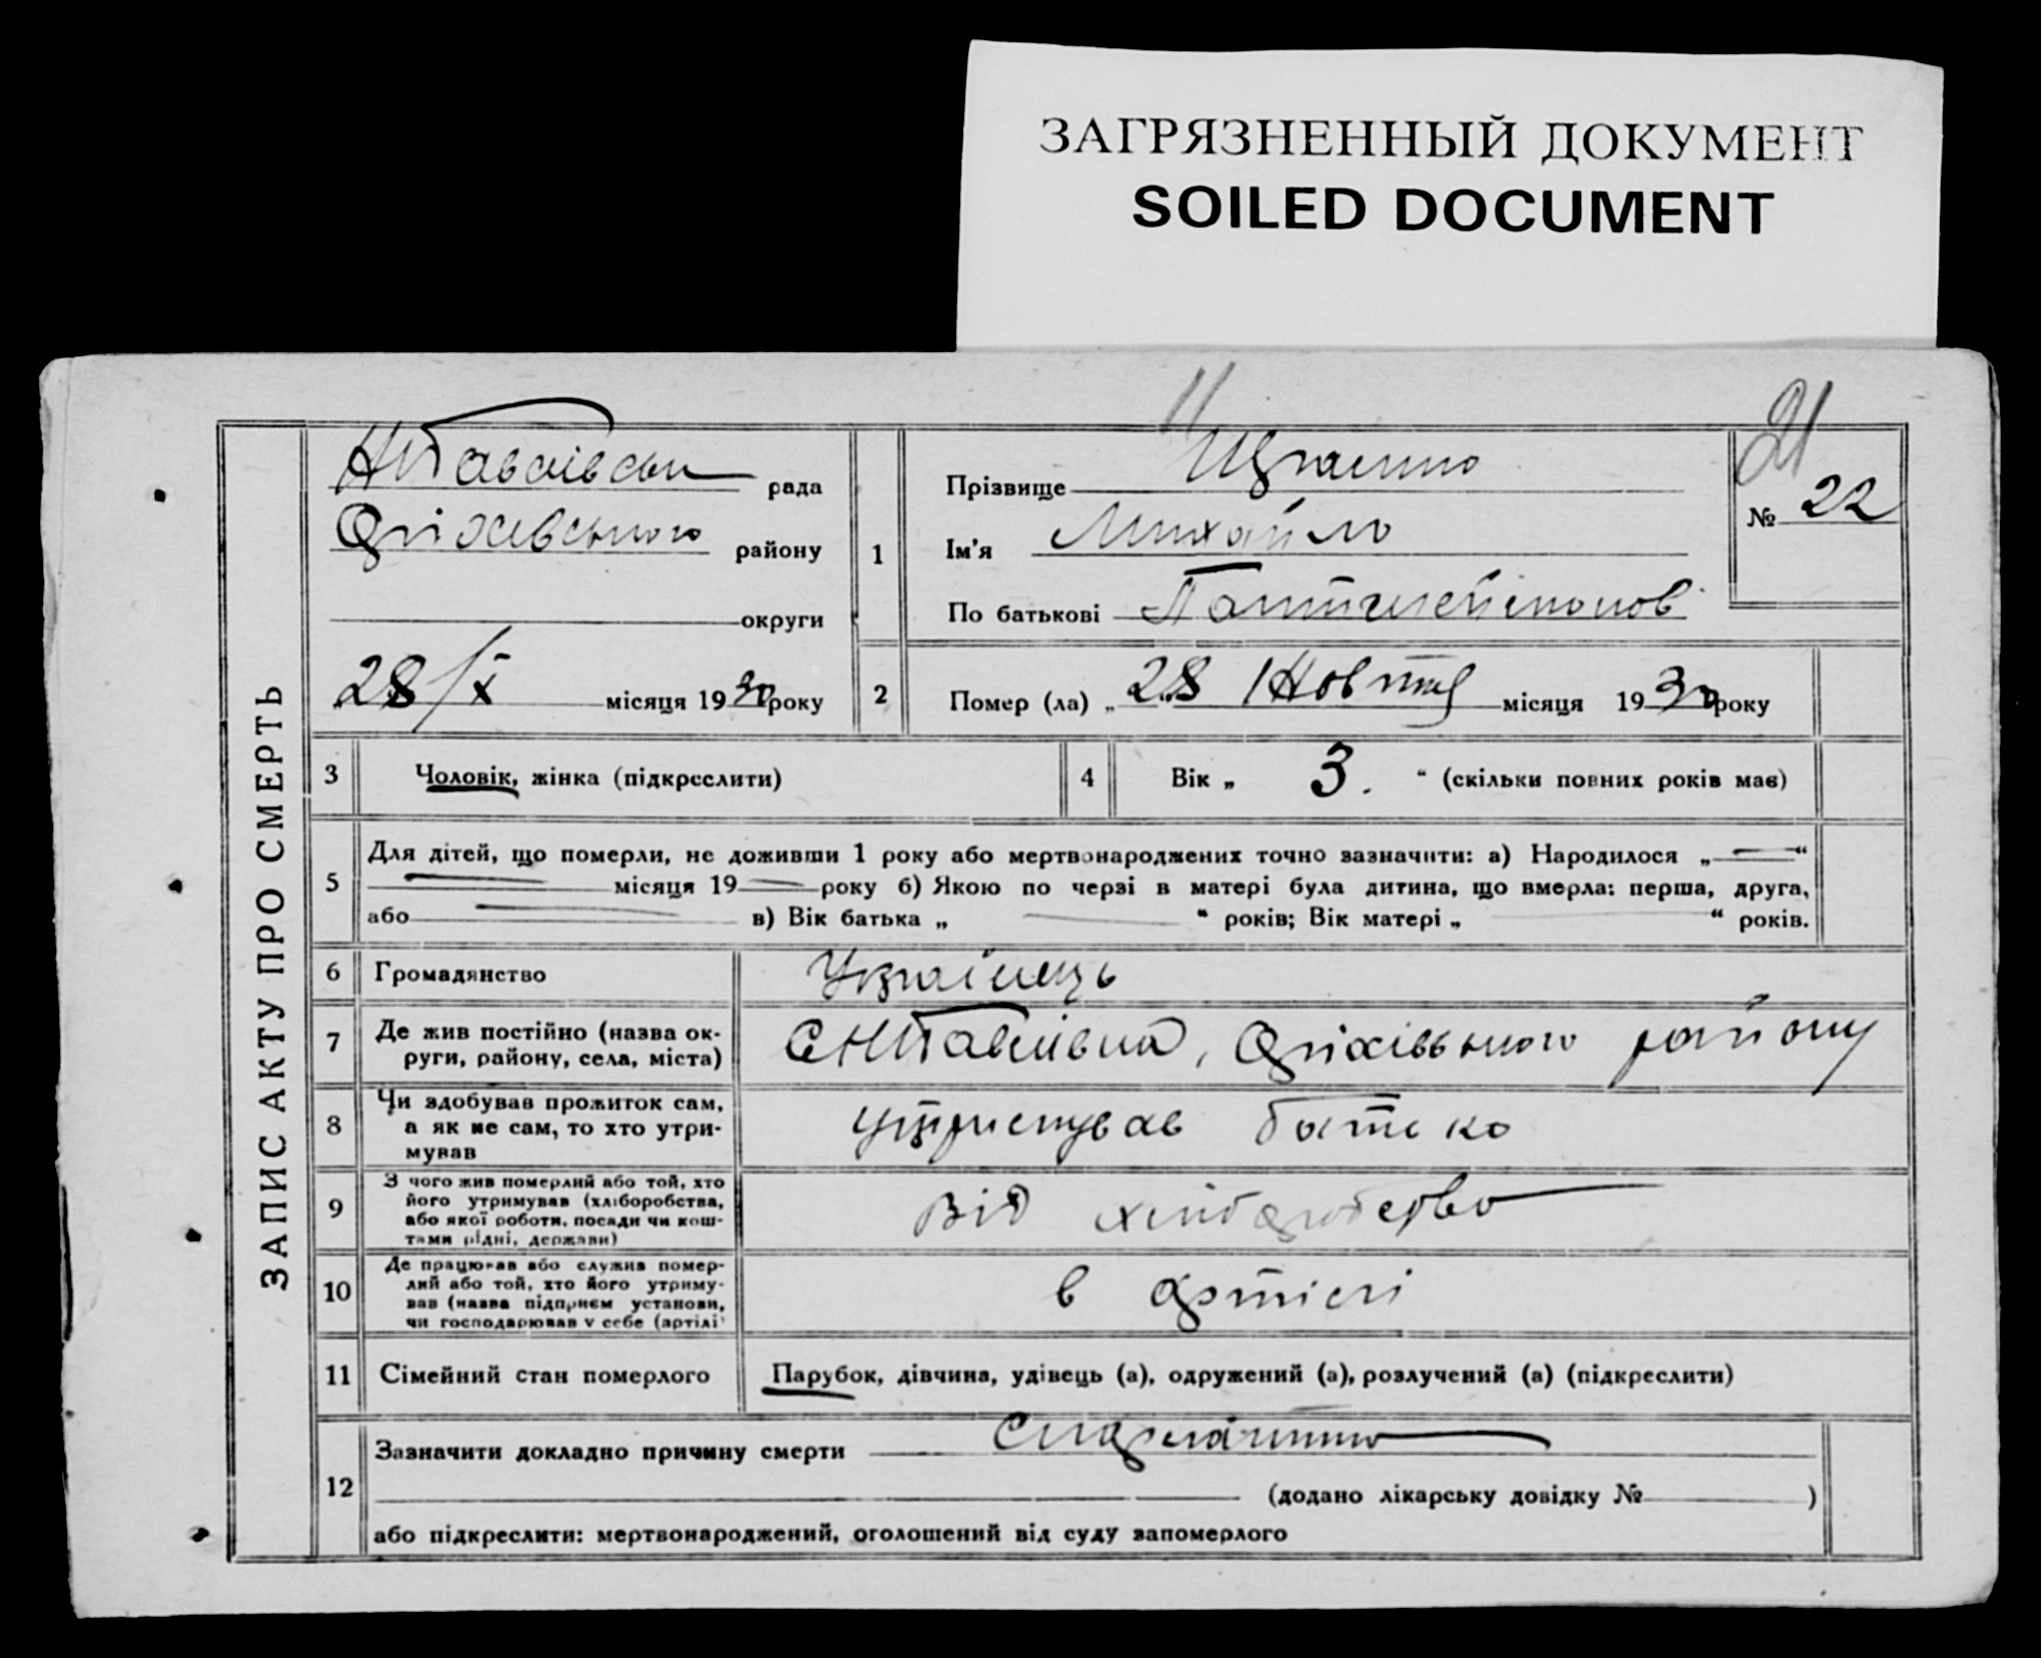 ЗАГРЯЗНЕННЫЙ ДОКУМЕНТ
SOILED DOCUMENT
ЗАПИС АКТУ ПРО СМЕРТЬ
рада
Оріхівського району
округи
28/X місяця 1930 року
1
Прізвище
Ім'я Михайло
По батькові
21
№ 22
2
Помер (ла) „ 28 " Жовтня місяця 1930 року
3
Чоловік, жінка (підкреслити)
4
Вік „ 3. " (скільки повних років має)
5
Для дітей, що померли, не доживши 1 року або мертвонароджених точно зазначити: а) Народилося „—"
місяця 19 року б) Якою по черзі в матері була дитина, що вмерла: перша, друга,
або в) Вік батька „ " років; Вік матері „ " років.
6
Громадянство
Українець
7
Де жив постійно (назва ок-
руги, району, села, міста)
Оріхівського району
8
Чи здобував прожиток сам,
а як не сам, то хто утри-
мував
утримував батько
9
З чого жив померлий або той, хто
його утримував (хліборобства,
або якої роботи, посади чи кош-
тами рідні, держави)
Від хліборобства
10
Де працював або служив помер-
лий або той, хто його утриму-
вав (назва підприєм установи,
чи господарював у себе (артілі)
в артілі
11
Сімейний стан померлого
Парубок, дівчина, удівець (а), одружений (а), розлучений (а) (підкреслити)
12
Зазначити докладно причину смерти Скарлатина
(додано лікарську довідку № )
або підкреслити: мертвонароджений, оголошений від суду запомерлого